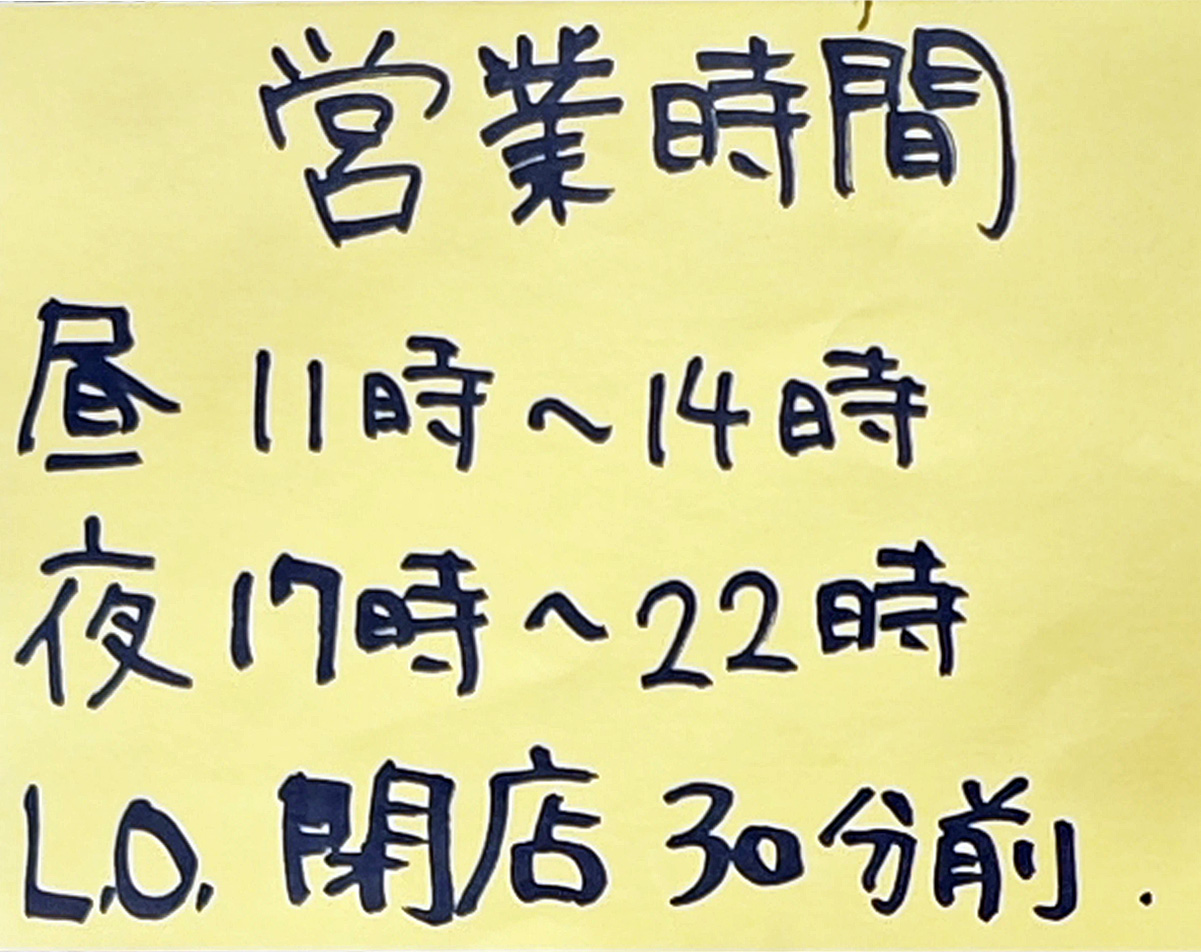 営業時間
昼 11時〜14時
夜 17時〜22時
L.O. 閉店 30分前.